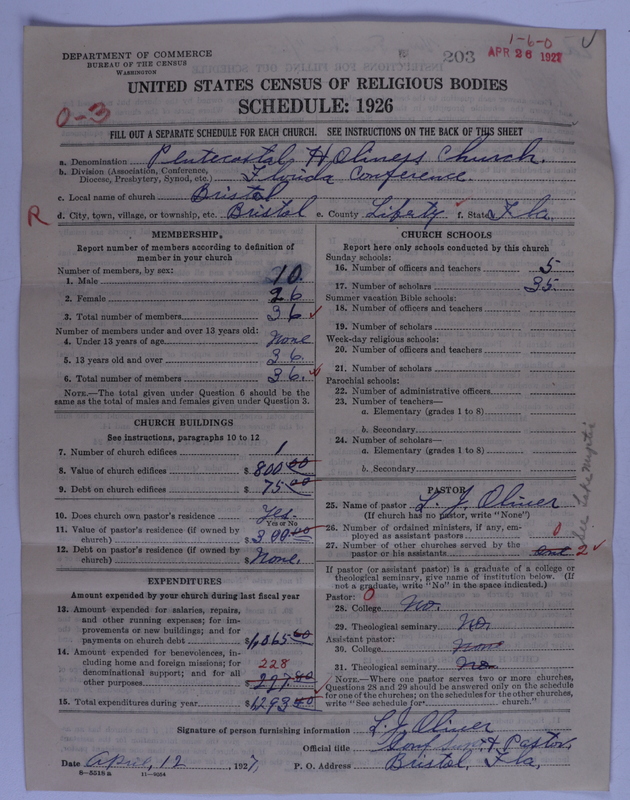 DEPARTMENT OF COMMERCE
BUREAU OF THE CENSUS
WASHINGTON
203
1-6-0
APR 26 1927
UNITED STATES CENSUS OF RELIGIOUS BODIES
SCHEDULE: 1926
0-3
FILL OUT A SEPARATE SCHEDULE FOR EACH CHURCH. SEE INSTRUCTIONS ON THE BACK OF THIS SHEET
a. Denomination Pentecostal Holiness Church.
b. Division (Association, Conference, Diocese, Presbytery, Synod, etc.) Florida Conference.
c. Local name of church Bristol
R
d. City, town, village, or township, etc. Bristol e. County Liberty f. State Fla.
MEMBERSHIP
Report number of members according to definition of
member in your church
Number of members, by sex:
1. Male 10
2. Female 26
3. Total number of members 36
Number of members under and over 13 years old:
4. Under 13 years of age None
5. 13 years old and over 36.
6. Total number of members 36.
NOTE.—The total given under Question 6 should be the
same as the total of males and females given under Question 3.
CHURCH BUILDINGS
See instructions, paragraphs 10 to 12
7. Number of church edifices 1
8. Value of church edifices $ 800 00
9. Debt on church edifices $ 75 00
10. Does church own pastor's residence Yes.
Yes or No
11. Value of pastor's residence (if owned by
church) $ 300.00
12. Debt on pastor's residence (if owned by
church) $ None.
EXPENDITURES
Amount expended by your church during last fiscal year
13. Amount expended for salaries, repairs,
and other running expenses; for im-
provements or new buildings; and for
payments on church debt $ 1,065 00
14. Amount expended for benevolences, in-
cluding home and foreign missions; for 228
denominational support; and for all
other purposes
15. Total expenditures during year $ 1293
CHURCH SCHOOLS
Report here only schools conducted by this church
Sunday schools:
16. Number of officers and teachers 5
17. Number of scholars 35
Summer vacation Bible schools:
18. Number of officers and teachers
19. Number of scholars
Week-day religious schools:
20. Number of officers and teachers
21. Number of scholars
Parochial schools:
22. Number of administrative officers
23. Number of teachers—
a. Elementary (grades 1 to 8)
b. Secondary
24. Number of scholars—
a. Elementary (grades 1 to 8)
b. Secondary
PASTOR
25. Name of pastor L. J. Oliver
(If church has no pastor, write "None")
26. Number of ordained ministers, if any, em-
ployed as assistant pastors 0
27. Number of other churches served by the
pastor or his assistants 2
If pastor (or assistant pastor) is a graduate of a college or
theological seminary, give name of institution below. (If
not a graduate, write "No" in the space indicated.)
Pastor: 0
28. College No.
29. Theological seminary No.
Assistant pastor:
30. College None
31. Theological seminary No.
NOTE.—Where one pastor serves two or more churches,
Questions 28 and 29 should be answered only on the schedule
for one of the churches; on the schedules for the other churches,
write "See schedule for church."
See Lake Mystic
Signature of person furnishing information L. J. Oliver
Official title Conf Supt. & Pastor,
Date April, 12, 1927, P. O. Address Bristol, Fla,
8—5518 a 11—9554